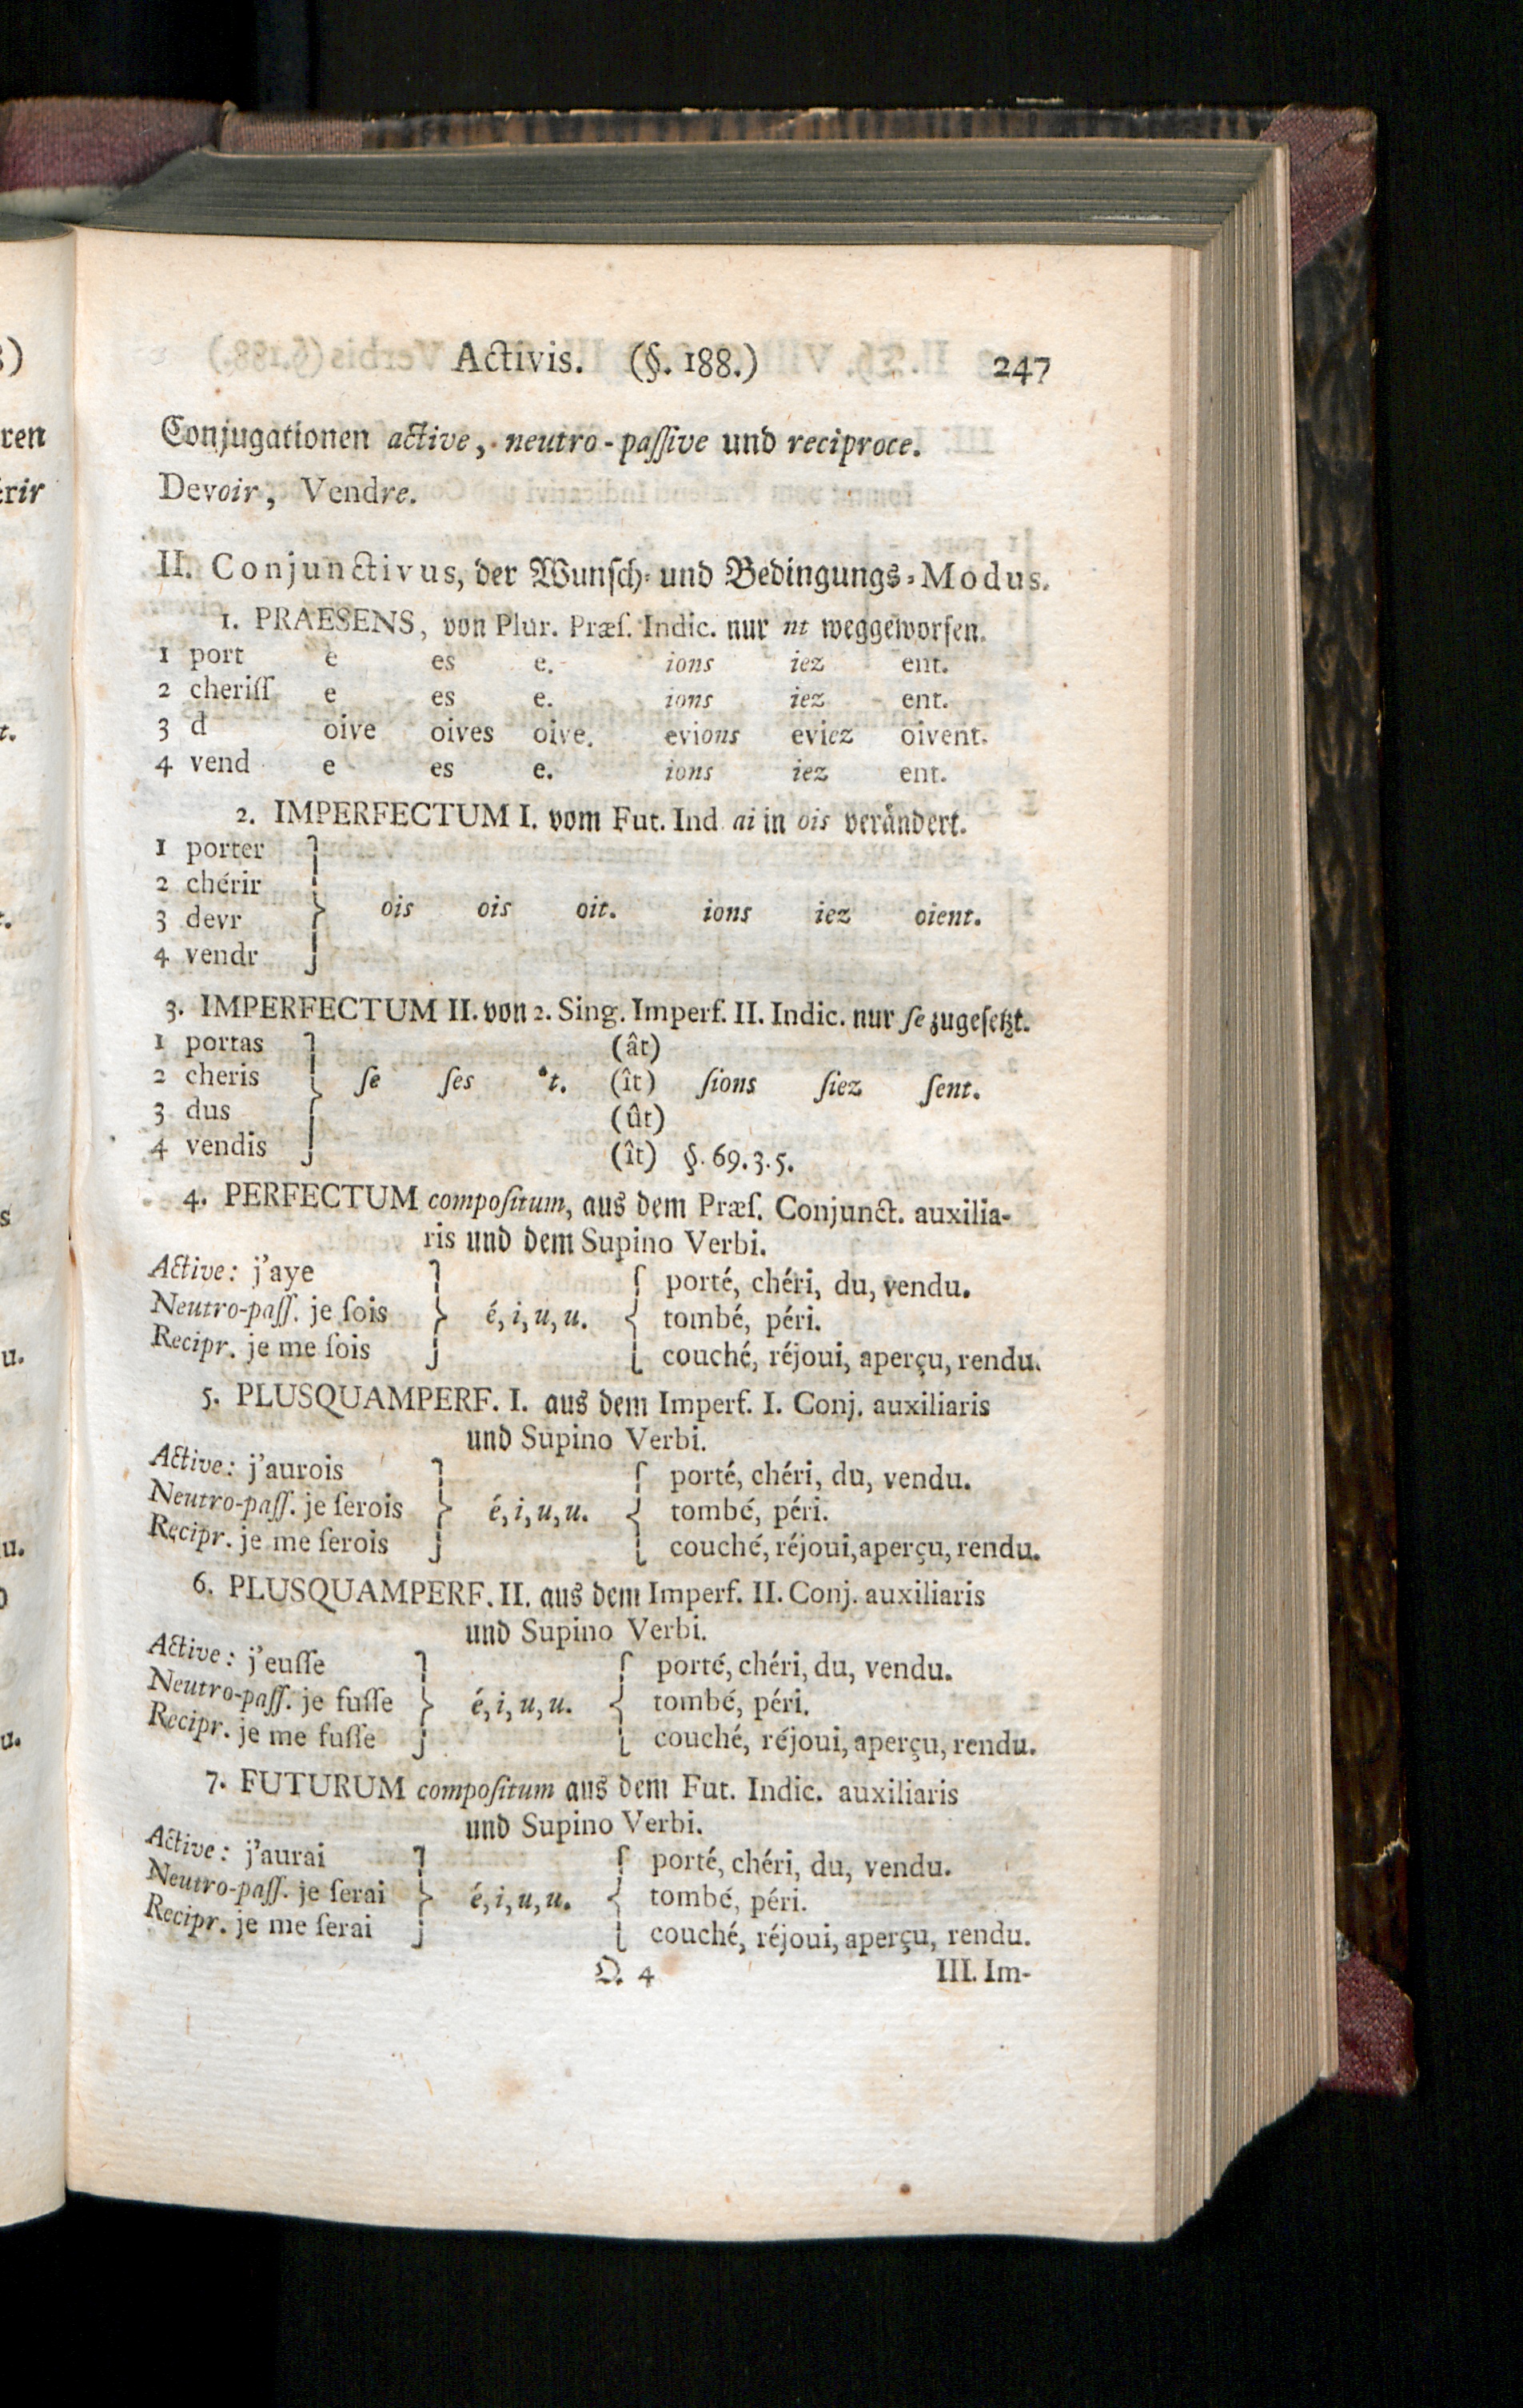 Activis. (§. 188.) 247
Conjugationen active, neutro-paſſive und reciproce.
Devoir, Vendre.
II. Conjunctivus, der Wunſch- und Bedingungs-Modus.
1. PRAESENS, von Plur. Præſ. Indic. nur nt weggeworfen.
1 port e es e. ions iez ent.
2 cheriſſ e es e. ions iez ent.
3 d oive oives oive. evions eviez oivent.
4 vend e es e. ions iez ent.
2. IMPERFECTUM I. vom Fut. Ind ai in ois verändert.
1 porter
2 chérir
3 devr } ois ois oit. ions iez oient.
4 vendr
3. IMPERFECTUM II. von 2. Sing. Imperf. II. Indic. nur ſe zugeſetzt.
1 portas (ât)
2 cheris } ſe ſes ˆt. (ît) ſions ſiez ſent.
3 dus (ût)
4 vendis (ît) §. 69. 3. 5.
4. PERFECTUM compoſitum, aus dem Præſ. Conjunct. auxilia-
ris und dem Supino Verbi.
Active: j'aye porté, chéri, du, vendu.
Neutro-paſſ. je ſois } é, i, u, u. { tombé, péri.
Recipr. je me ſois couché, réjoui, aperçu, rendu.
5. PLUSQUAMPERF. I. aus dem Imperf. I. Conj. auxiliaris
und Supino Verbi.
Active: j'aurois porté, chéri, du, vendu.
Neutro-paſſ. je ſerois } é, i, u, u. { tombé, péri.
Recipr. je me ſerois couché, réjoui, aperçu, rendu.
6. PLUSQUAMPERF. II. aus dem Imperf. II. Conj. auxiliaris
und Supino Verbi.
Active: j'euſſe porté, chéri, du, vendu.
Neutro-paſſ. je fuſſe } é, i, u, u. { tombé, péri.
Recipr. je me fuſſe couché, réjoui, aperçu, rendu.
7. FUTURUM compoſitum aus dem Fut. Indic. auxiliaris
und Supino Verbi.
Active: j'aurai porté, chéri, du, vendu.
Neutro-paſſ. je ſerai } é, i, u, u. { tombé, péri.
Recipr. je me ſerai couché, réjoui, aperçu, rendu.
Q. 4 III. Im-